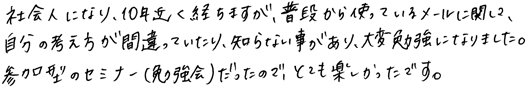 社会人になり、10年近く経ちますが、普段から使っているメールに関して、
自分の考え方が間違っていたり、知らない事があり、大変勉強になりました。
参加型のセミナー(勉強会)だったので、とても楽しかったです。